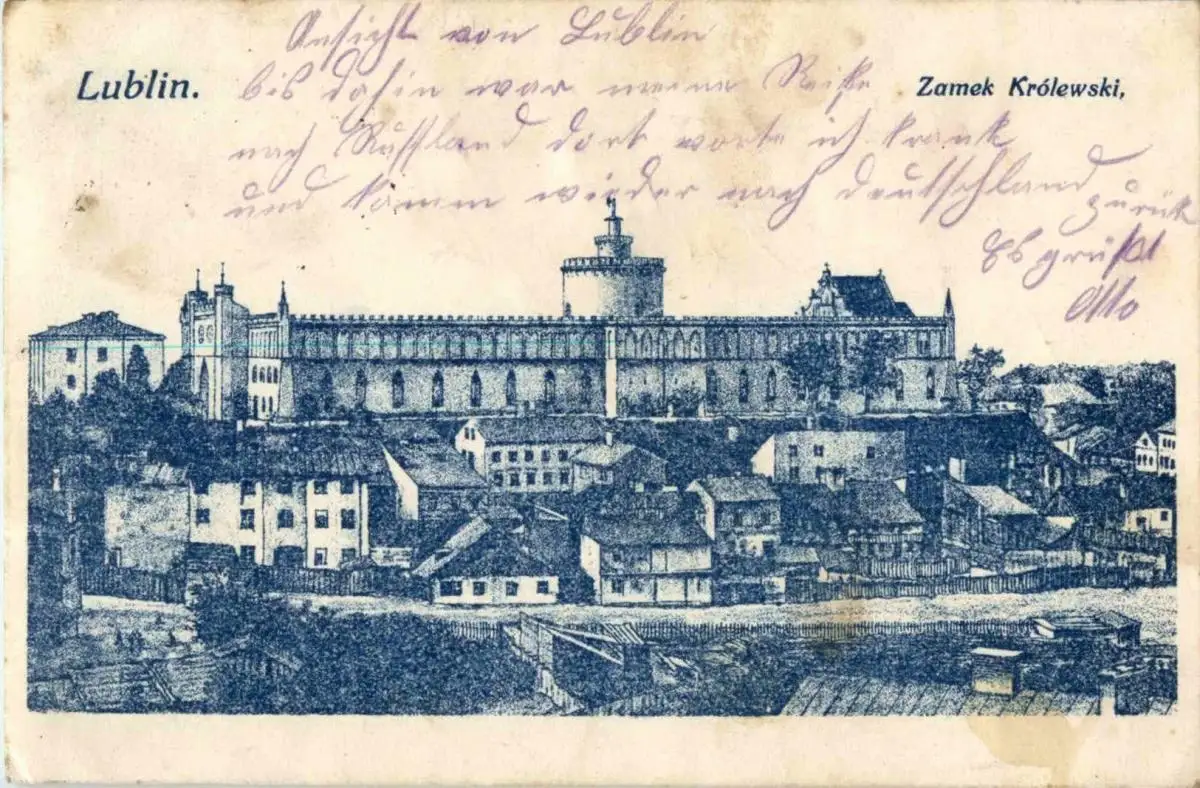 Lublin.
Zamek Królewski,
Ansicht von Lublin
bis dahin war meine Reiße
nach Russland dort warte ich krank
und kamm wieder nach deutschland
zurück
Es grüßt
Otto